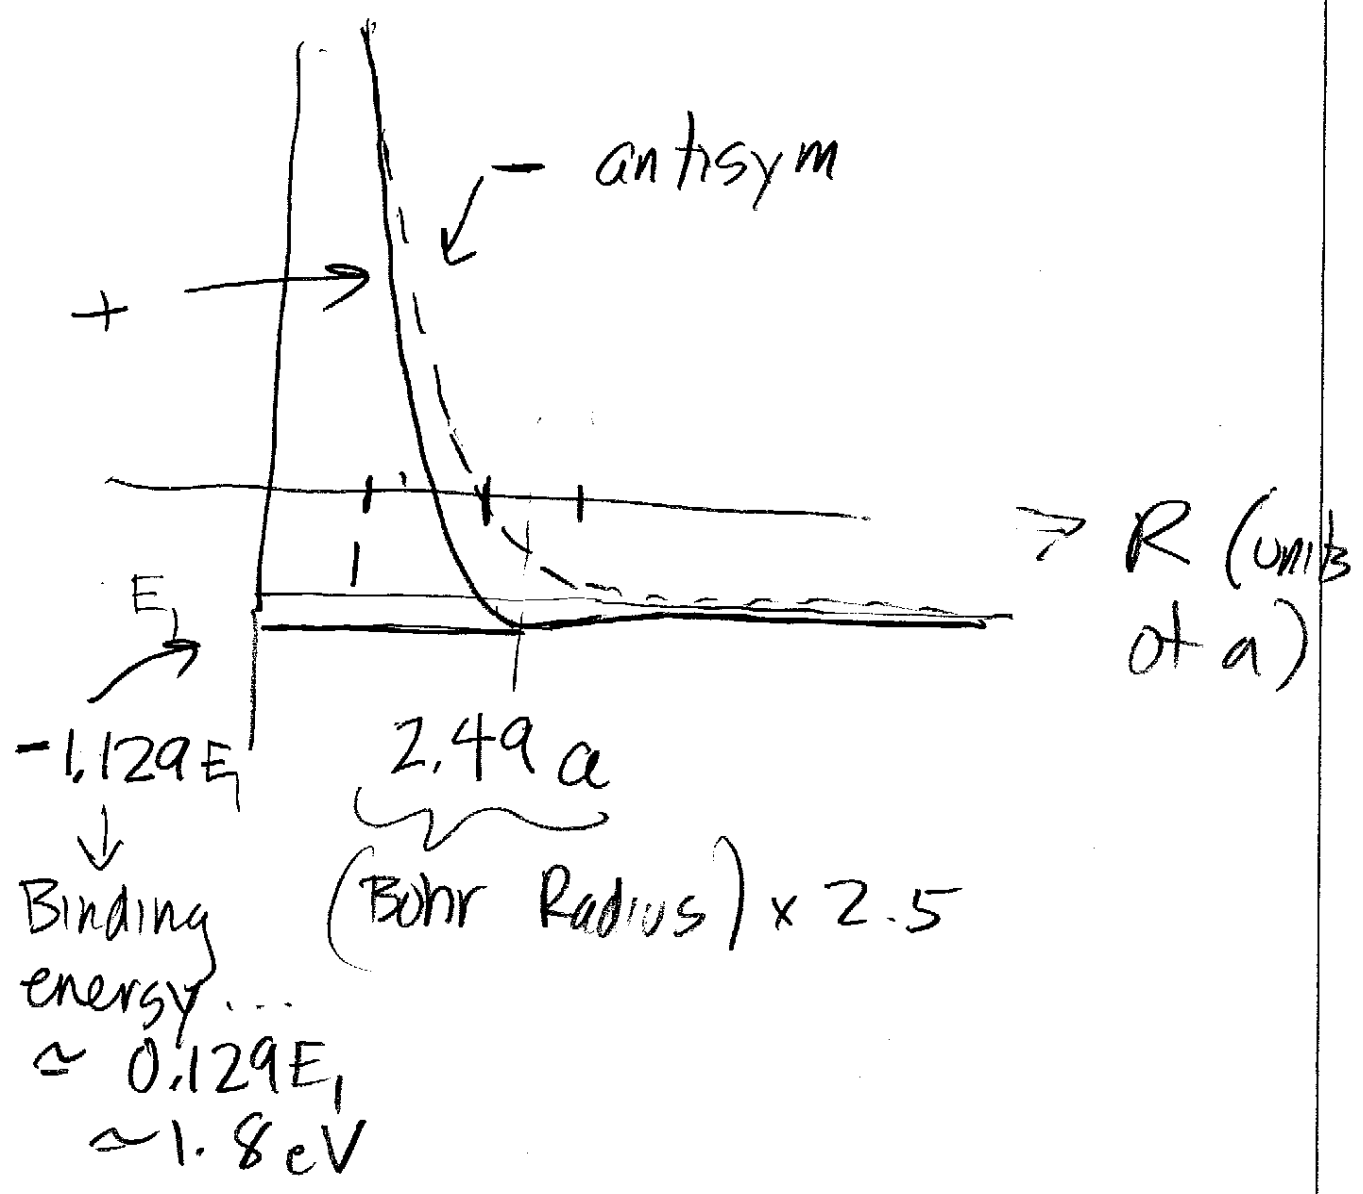 - antisym
+
E₁
R (units
of a)
-1.129 E₁
2.49 a
(Bohr Radius) x 2.5
Binding
energy ...
≃ 0.129 E₁
≃ 1.8 eV